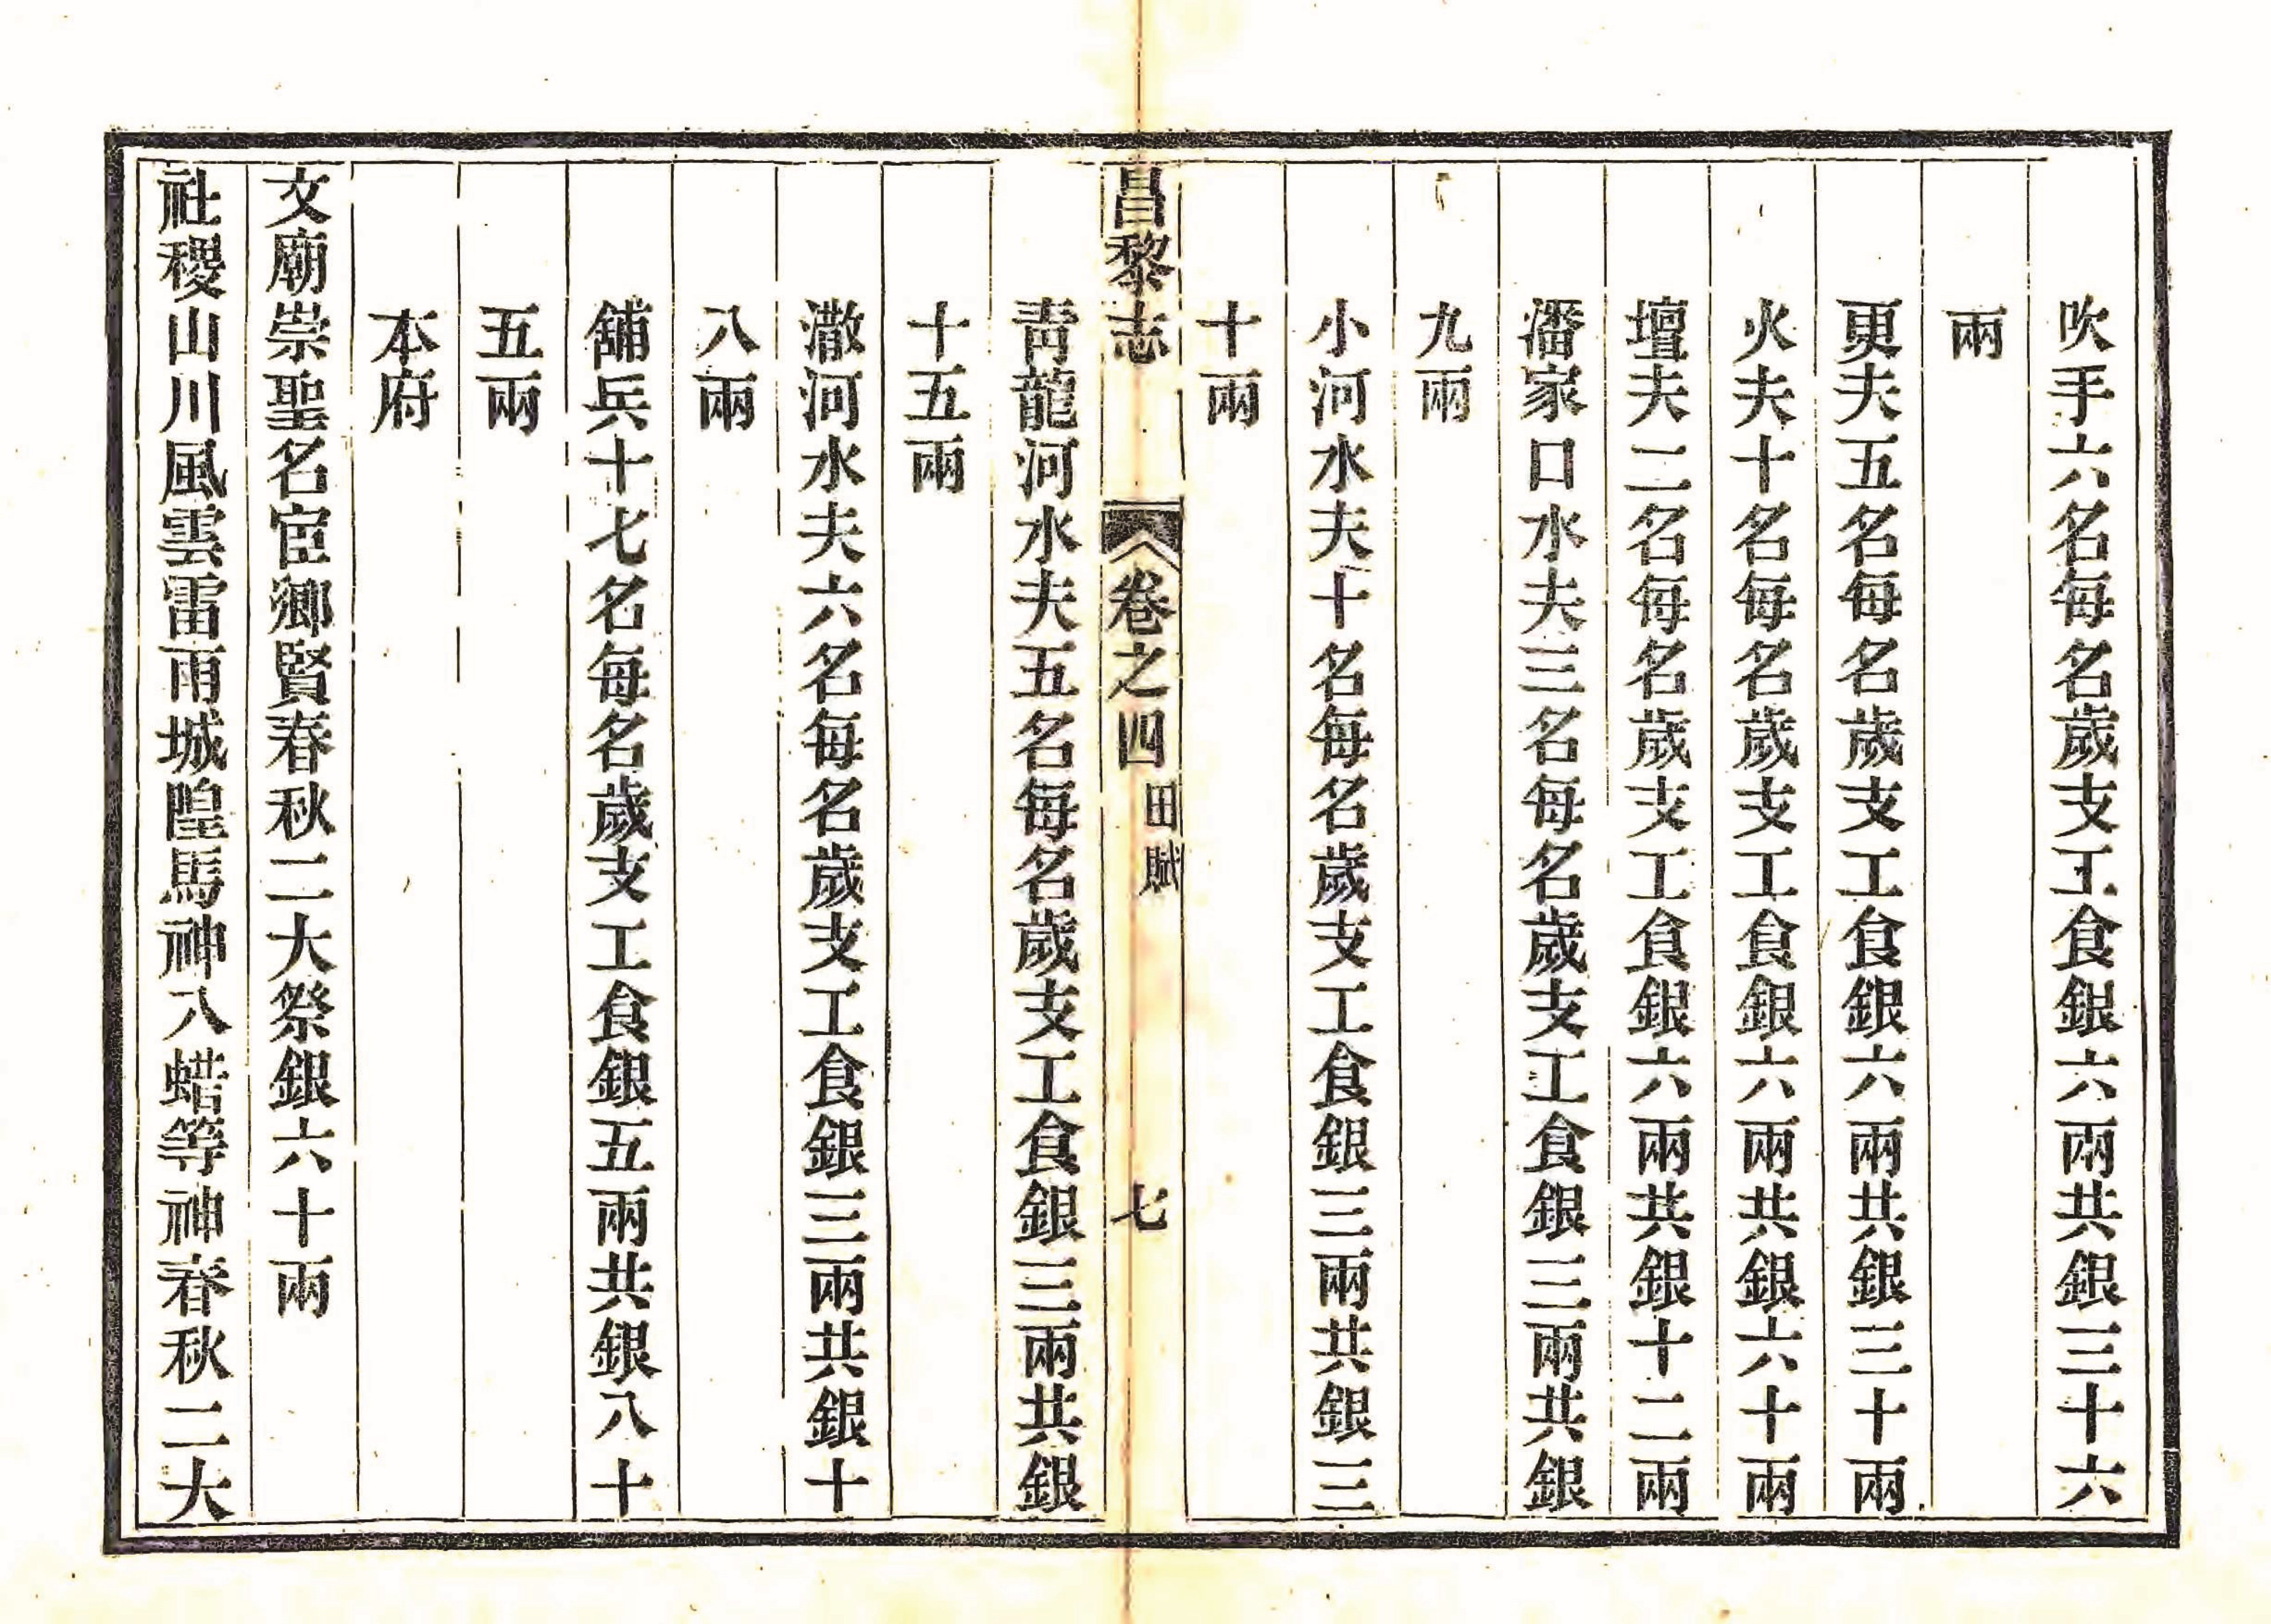 吹手六名每名歲支工食銀六兩共銀三十六
兩
更夫五名每名歲支工食銀六兩共銀三十兩
火夫十名每名歲支工食銀六兩共銀六十兩
壇夫二名每名歲支工食銀六兩共銀十二兩
潘家口水夫三名每名歲支工食銀三兩共銀
九兩
小河水夫十名每名歲支工食銀三兩共銀三
十兩
昌黎志 卷之四 田賦 七
青龍河水夫五名每名歲支工食銀三兩共銀
十五兩
潵河水夫六名每名歲支工食銀三兩共銀十
八兩
舖兵十七名每名歲支工食銀五兩共銀八十
五兩
本府
文廟崇聖名宦鄉賢春秋二大祭銀六十兩
社稷山川風雲雷雨城隍馬神八蜡等神春秋二大